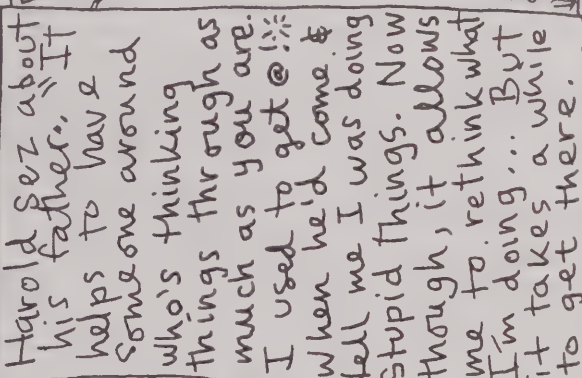 Harold Sez about
his father: "It
helps to have
Someone around
who's thinking
things through as
much as you are.
I used to get @
when he'd come &
tell me I was doing
Stupid things. Now
though, it allows
me to rethink what
I'm doing... But
it takes a while
to get there.